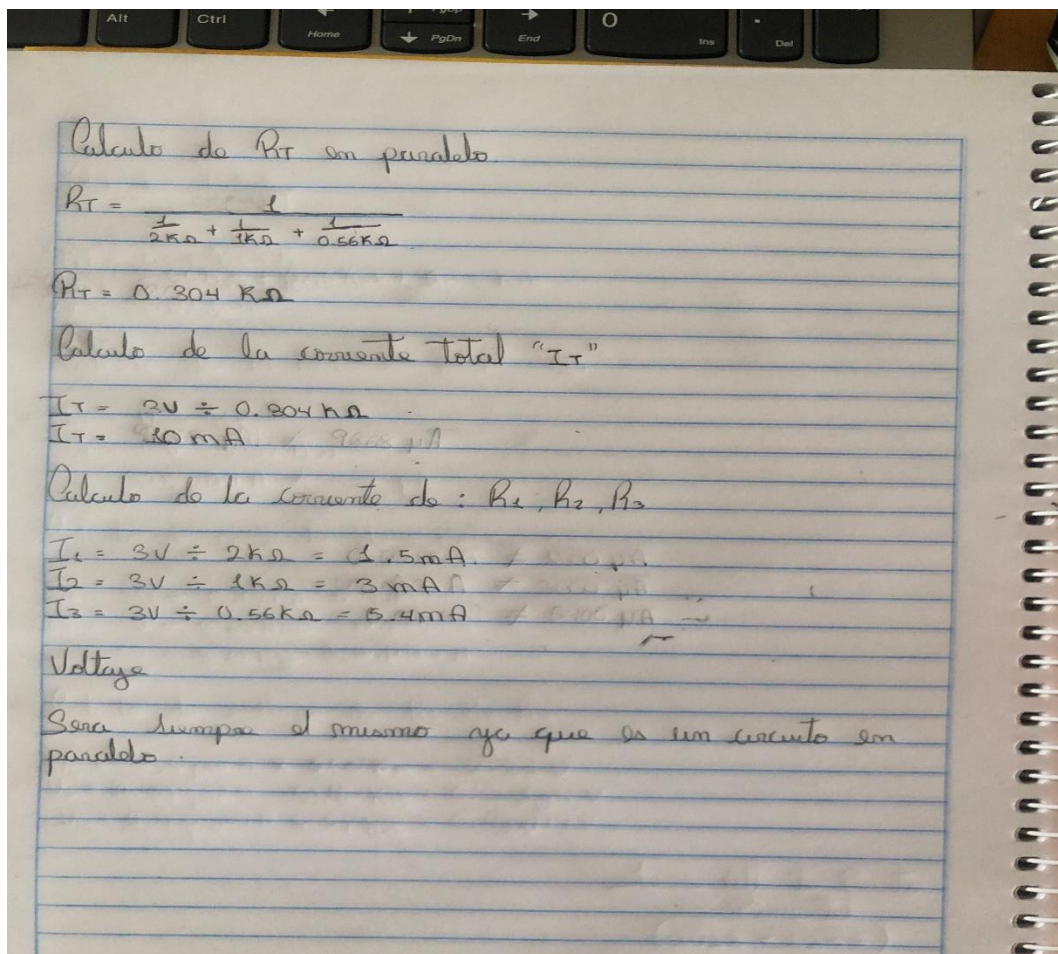 Alt
Ctrl
Home
PgDn
End
O
Ins
Del
Calculo de RT en paralelo.
RT = 1
1/2KΩ + 1/1KΩ + 1/0.56KΩ
RT = 0.304 KΩ
Calculo de la corriente total "IT"
IT = 3V ÷ 0.304 KΩ
IT = 10mA
Calculo de la corriente de : R1, R2, R3
I1 = 3V ÷ 2KΩ = 1.5mA
I2 = 3V ÷ 1KΩ = 3mA
I3 = 3V ÷ 0.56KΩ = 5.4mA
Voltaje
Sera siempre el mismo ya que es un circuito en
paralelo.